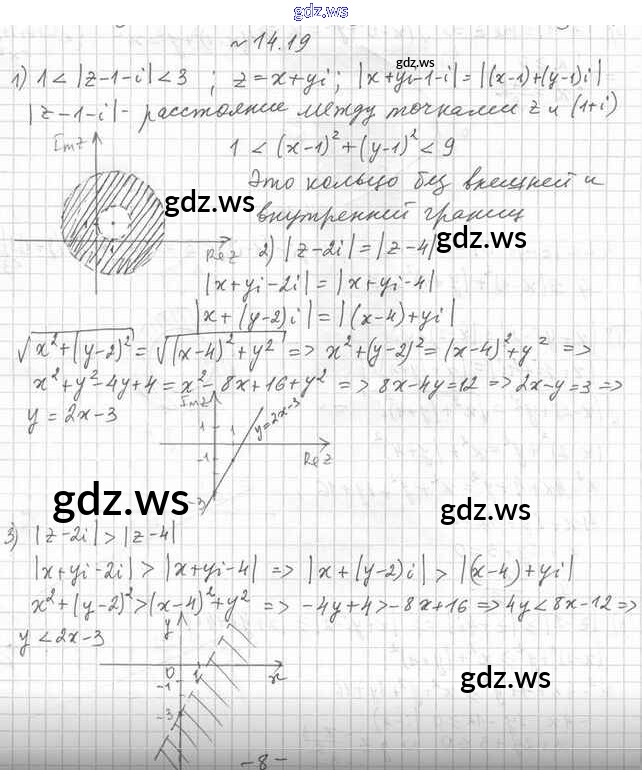 gdz.ws
№14.19
1) 1 < |z-1-i| < 3 ; z = x+yi ; |x+yi-1-i| = |(x-1)+(y-1)i|
|z-1-i| - расстояние между точками z и (1+i)
1 < (x-1)² + (y-1)² < 9
Это кольцо без внешней и
внутренней границ
Imz
Rez
2) |z-2i| = |z-4|
|x+yi-2i| = |x+yi-4|
|x+(y-2)i| = |(x-4)+yi|
√(x²+(y-2)²) = √((x-4)²+y²) => x²+(y-2)² = (x-4)²+y² =>
x²+y²-4y+4 = x²-8x+16+y² => 8x-4y=12 => 2x-y=3 =>
y = 2x-3
Imz
y=2x-3
1
1
-1
-3
Rez
3) |z-2i| > |z-4|
|x+yi-2i| > |x+yi-4| => |x+(y-2)i| > |(x-4)+yi|
x²+(y-2)² > (x-4)²+y² => -4y+4 > -8x+16 => 4y < 8x-12 =>
y < 2x-3
y
0
1
x
-1
-3
-8-
gdz.ws
gdz.ws
gdz.ws
gdz.ws
gdz.ws
gdz.ws